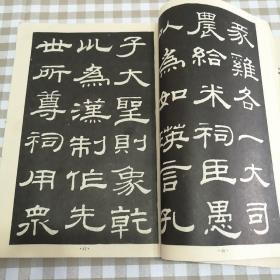 豕雞各一大司
農給米祠臣愚
以為如瑛言孔
子大聖則象乾
巛為漢制作先
世所尊祠用衆